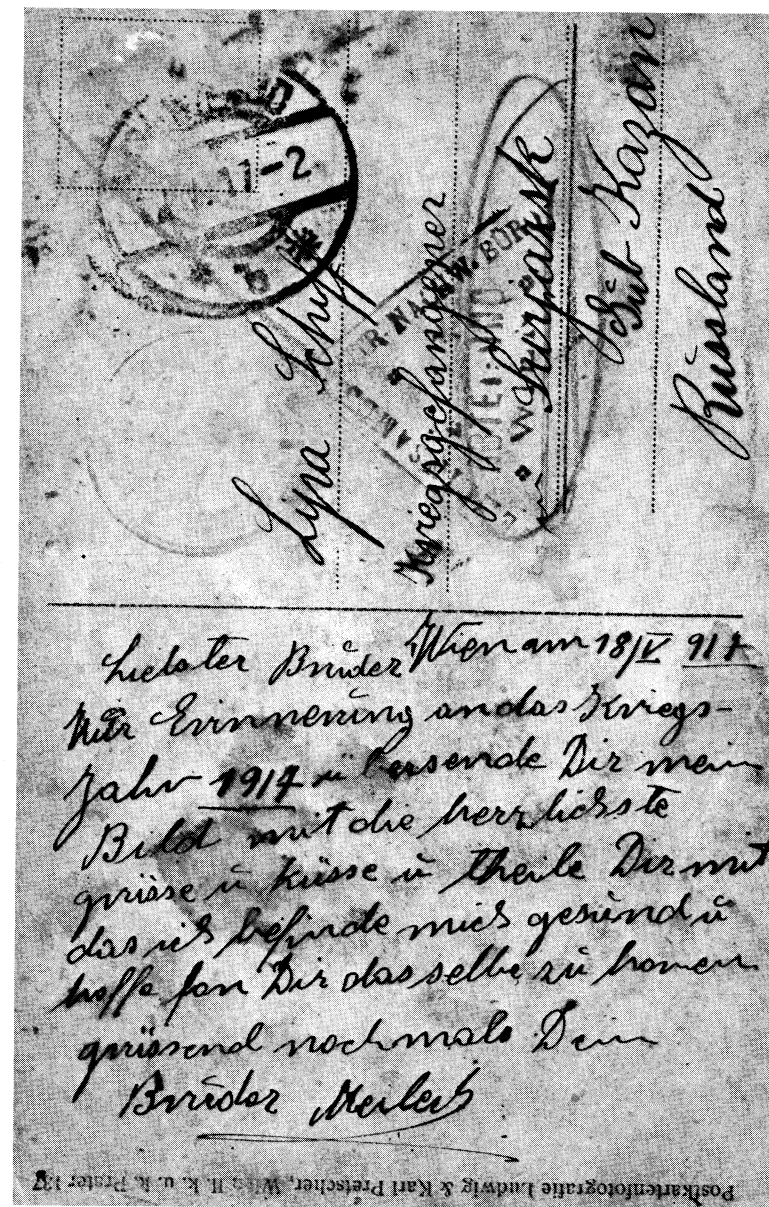 11-2
Lypa Schif
Kriegsgefangener
Gub Kazan
Russland
Liebster Bruder Wien am 18/IV 917
Zur Erinnerung an das Kriegs-
Jahr 1917 übersende Dir mein
Bild mit die herzlichste
grüsse u küsse u theile Dir mit
das ich befinde mich gesund u
hoffe fon Dir das selbe zu
grüssend nochmals Dein
Bruder Meilech
Postkartenfotografie Ludwig & Karl Pretscher, Wien II. k. u. k. Prater 137